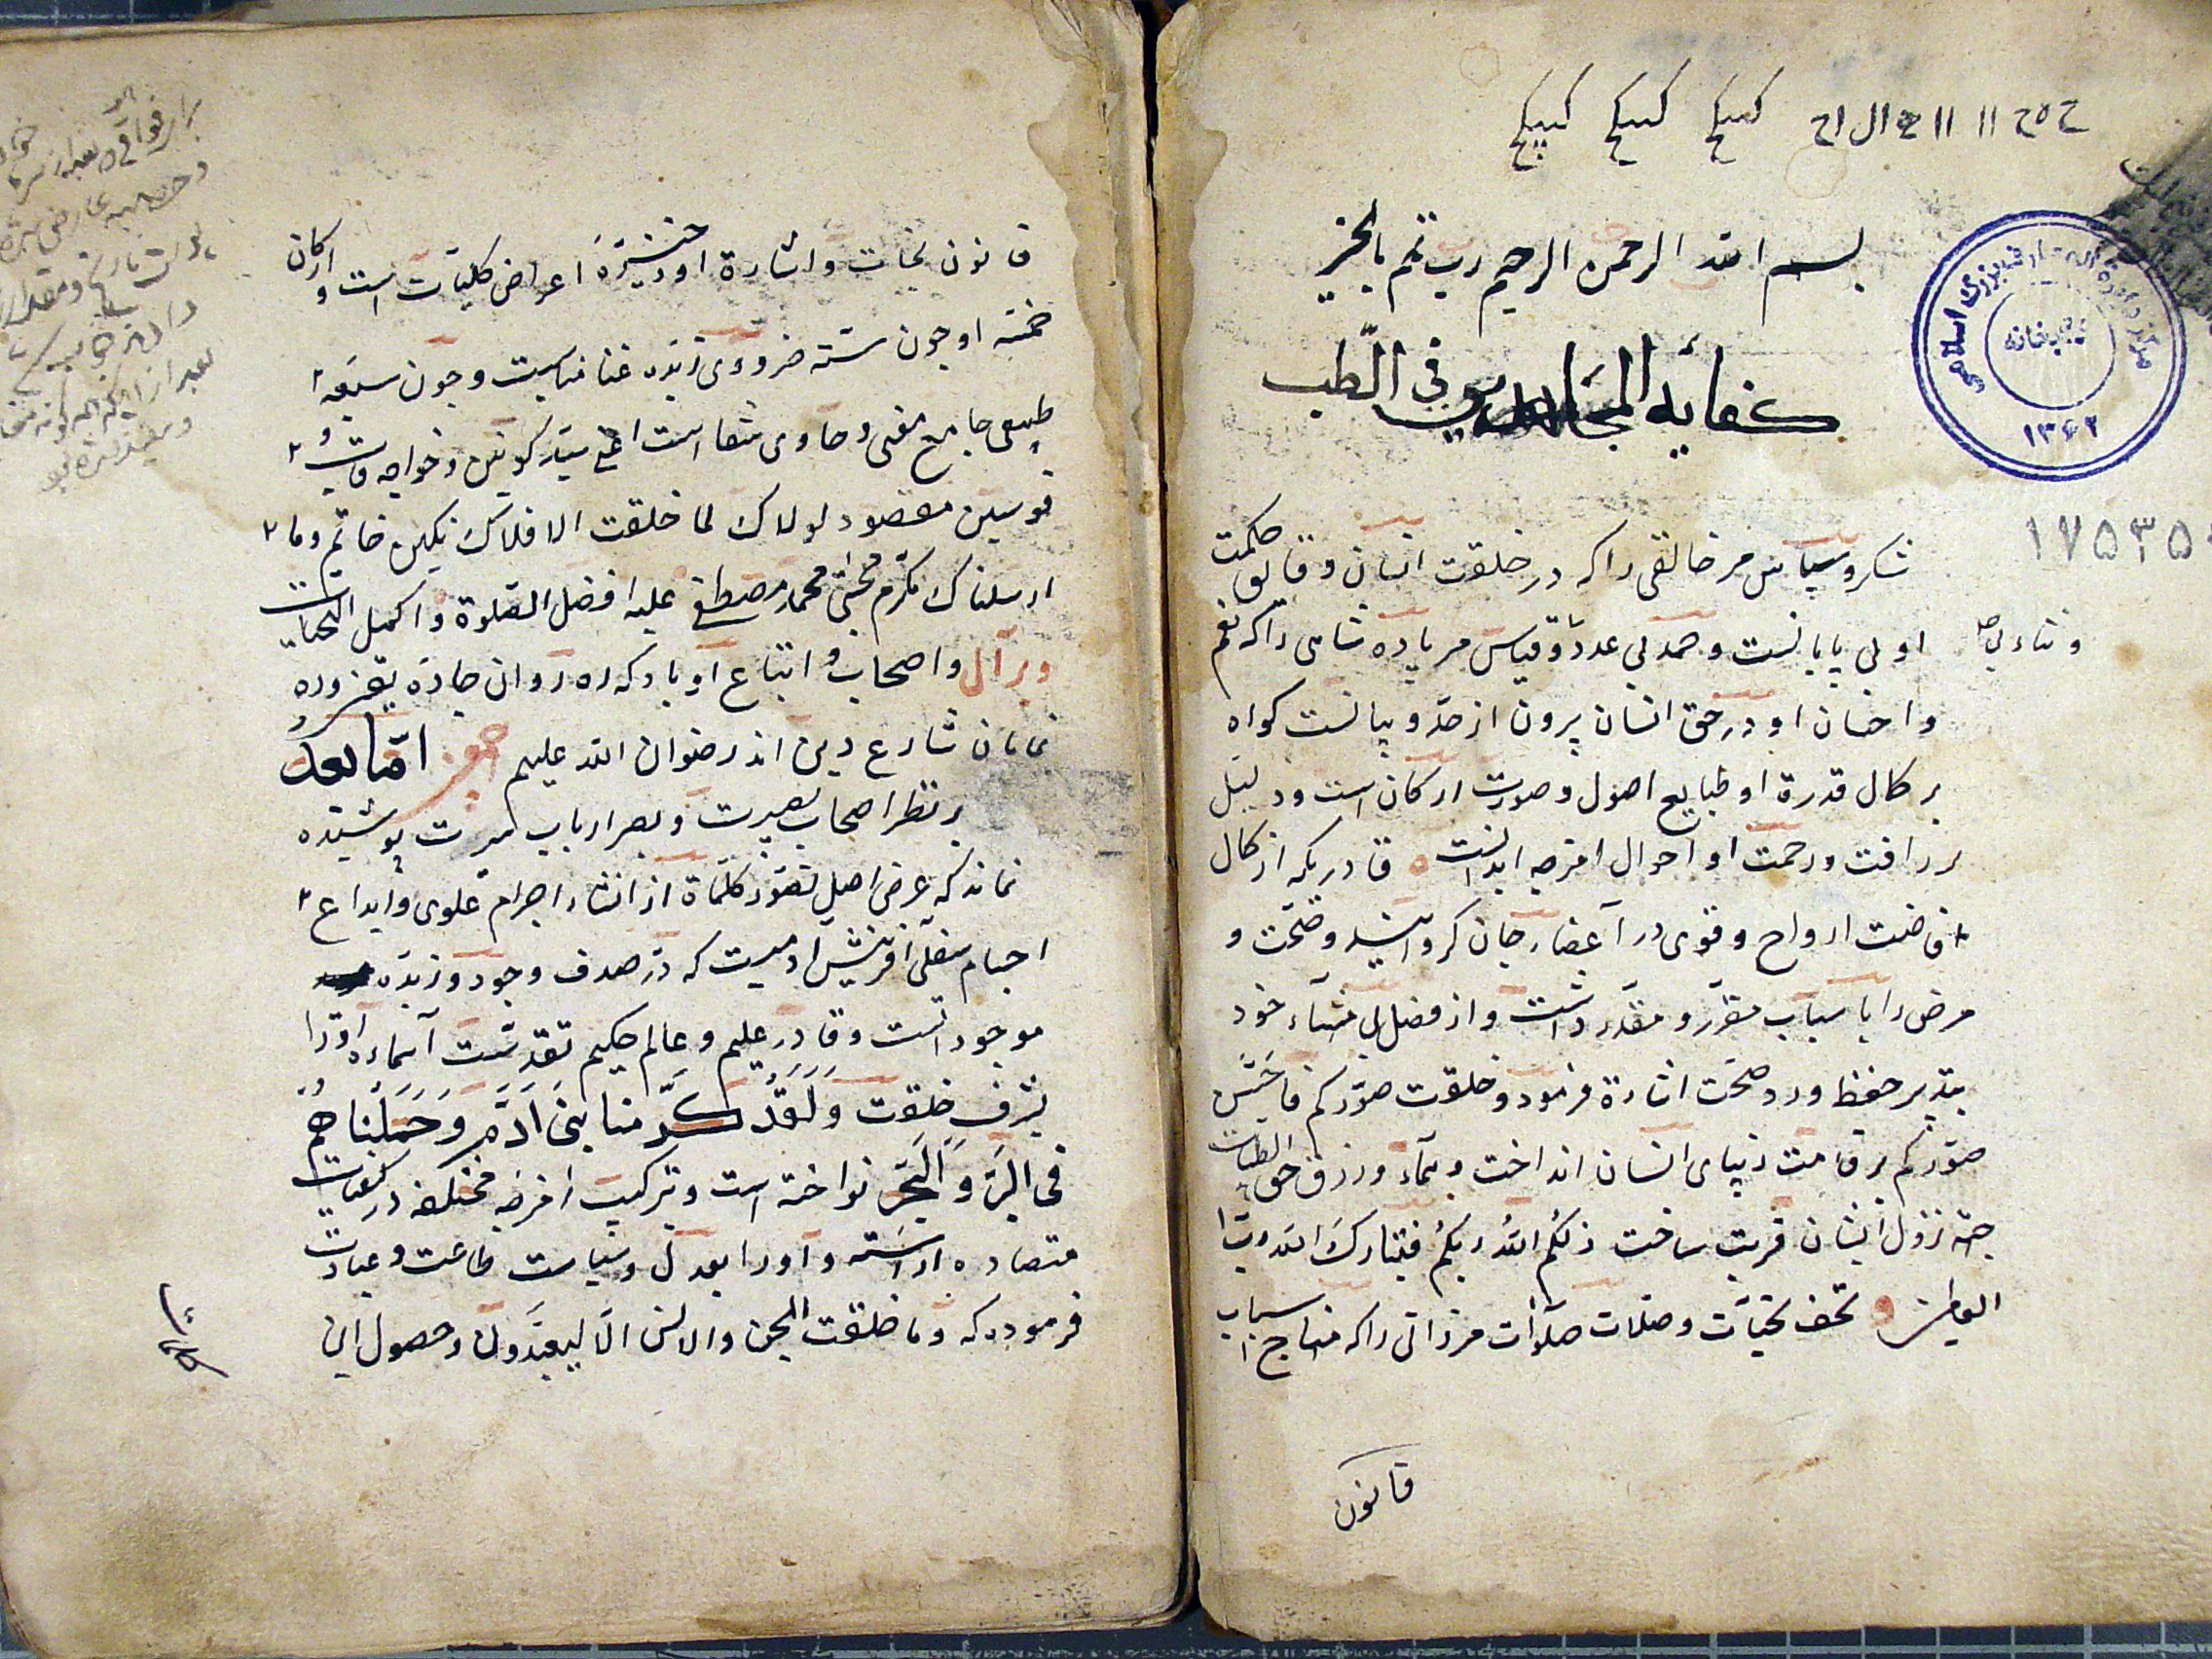 کبیکج کبیکج کبیکج
بسم الله الرحمن الرحیم رب تمم بالخیر
کفایه المجاهدیه فی الطب
مرکز دائرة المعارف بزرگ اسلامی
کتابخانه
۱۳۶۲
۱۷۵۳۵
شکر و سپاس مر خالقی را که در خلقت انسان دقایق حکمت
او بی پایانست و حمد بی عدد و قیاس مر پادشاهی را که نعم
و ثناء بی
و احسان او در حق انسان بیرون از حد و بیانست کواه
بر کمال قدرة او طبایع اصول و صورت ارکان است و دلیل
بر رافت و رحمت او احوال امزجه ابدانست قادریکه از کمال
افاضت ارواح و قوی در اعضا جان کردانید و صحت و
مرض را باسباب مقرر و مقدر داشت و از فضل بی منتهاء خود
بتدبیر حفظ و رد صحت اشارة فرمود و خلقت صورکم فاحسن
صورکم بر قامت زیبای انسان انداخت و سماء ورزق من الطیبات
جهة نزول ایشان مرتب ساخت ذلکم الله ربکم فتبارک الله رب
العالمین و تحف تحیات و صلات صلوات مر ذاتی را که منهاج اسباب
قانون
قانون نجات و اشارة او ذخیرهٔ اعراض کلیات است و ارکان
خمسه او چون سته ضروری زبده غنا منیاست و چون سبعه
طبیعی جامع مغنی و حاوی شفا است اعنی سید کونین و خواجه قاب
قوسین مقصود لولاک لما خلقت الافلاک نکین خاتم و ما
ارسلناک مکرم مجتبی محمد مصطفی علیه افضل الصلوة و اکمل التحیات
و بر آل و اصحاب و اتباع او باد که ره روان جادهٔ یقین و ره
نمایان شارع دین اند رضوان الله علیهم اجمعین اما بعد
بر نظر اصحاب بصیرت و بصر ارباب سیرت پوشیده
نماند که غرض اصلی تصور کلماة از انشاء اجرام علوی و ابداع
اجسام سفلی آفرینش آدمیست که در صدف وجود و زبده
موجود است و قادر علیم و عالم حکیم تقدست اسماءه او را
بشرف خلقت وَلَقَدْ کَرَّمنا بَنی آدَمَ وَ حَمَلْناهُمْ
فی البرِّ وَ البَحْرِ نواخته است و بترکیب امزجه مختلفه در کیفیات
متضاده اراسته و او را بعدل و سیاست طاعت و عبادت
فرموده که و ما خلقت الجن و الانس الا لیعبدون و حصول این